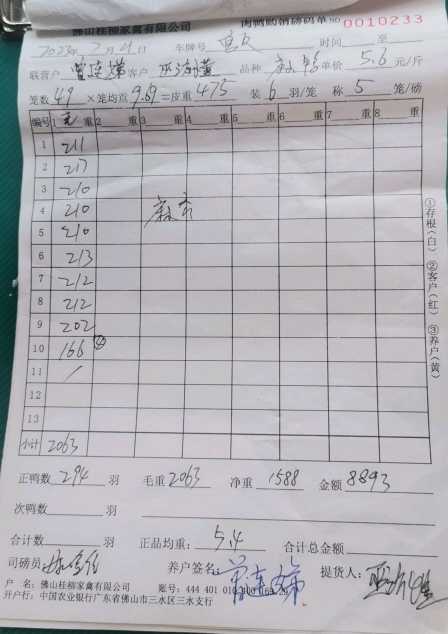 佛山桂柳家禽有限公司 肉鸭购销磅码单 №0010233
2023年2月21日 车牌号 时间 至
联营户 曾连娣 客户 品种 单价 5.6 元/斤
笼数 49 ×笼均重 9.69 =皮重 475 装 6 羽/笼 称 5 笼/磅
编号 1 毛重 2 重 3 重 4 重 5 重 6 重 7 重 8 重
1 211
2 217
3 210
4 210
5 210
6 213
7 212
8 212
9 202
10 166 ④
11 /
12
13
小计 2063
①存根(白) ②客户(红) ③养户(黄)
正鸭数 294 羽 毛重 2063 净重 1588 金额 8893
次鸭数 羽
合计数 羽 正品均重: 5.4 合计总金额
司磅员 养户签名: 曾连娣 提货人:
户 名: 佛山桂柳家禽有限公司 账号: 444 401 010 400
开户行: 中国农业银行广东省佛山市三水区三水支行